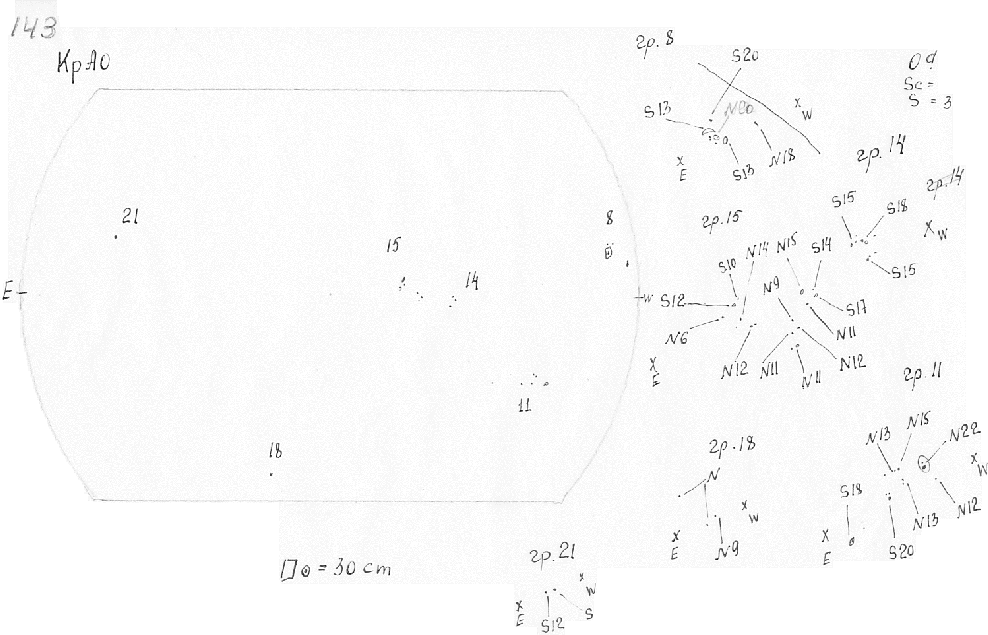 143
КрАО
гр. 8
S20
S13
N20
S13
N18
x W
x E
S = 3
гр. 14
гр. 14
S15
S18
S15
x W
гр. 15
S10
N14
N15
S14
S12
N9
S17
N6
N11
N12
N11
N11
N12
x E
21
15
14
8
E
W
11
18
гр. 11
N13
N15
N22
x W
S18
N12
N13
S20
x E
гр. 18
N
x W
x E
N9
гр. 21
x W
x E
S12
S
= 30 cm